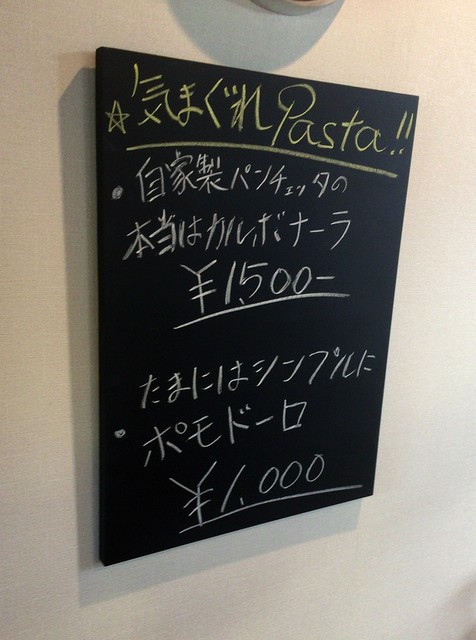 ☆気まぐれPasta!!
・自家製パンチェッタの
本当はカルボナーラ
¥1,500-
たまにはシンプルに
・ポモドーロ
¥1,000